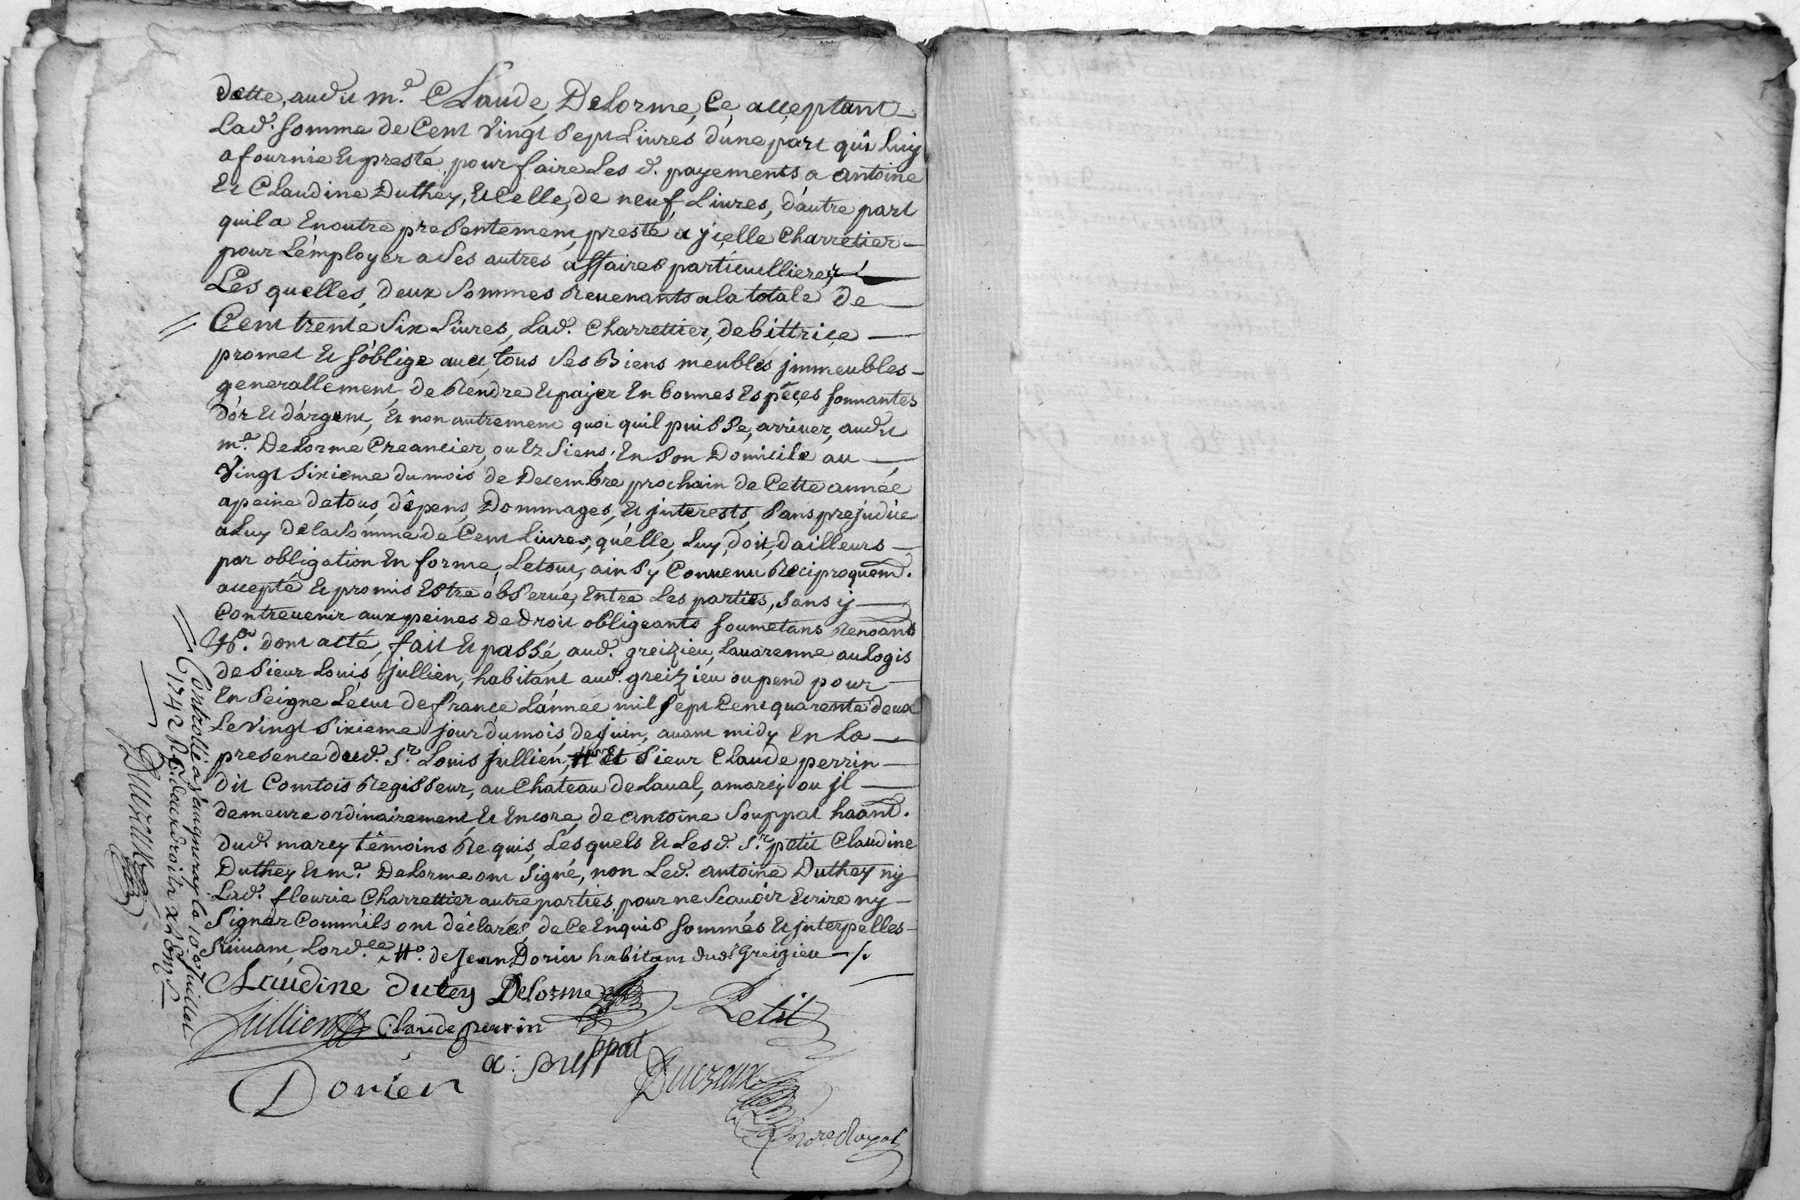 dette, audit m.e Claude Delorme, Ce, acceptant
Lad.e somme de Cent vingt sept Livres d'une part qui Luy
a fournie et presté pour faire Les d. payements a antoine
Et Claudine Duthey, Et Celle, de neuf Livres, d'autre part
quil a En outre presentement presté a jcelle Charretier
pour L'employer a ses autres affaires particullieres,
Les quelles, deux sommes Revenants a la totale de
Cent trente six Livres, Lad.e Charrettier, debittrice
promet Et s'oblige avec tous ses Biens meubles jmmeubles
generallement de Rendre Et payer En bonnes Especes sonnantes
d'or Et d'argent, Et non autrement quoi quil puisse, arriver, audit
m.e Delorme Creancier, ou Ez siens, En son Domicile au
vingt sixieme du mois de Decembre prochain de Cette année
a peine de tous, dépens, Dommages, Et jnterests, sans prejudice
a Luy de la somme de Cent Livres, qu'elle, Luy, doit, d'ailleurs
par obligation En forme, Le tout, ainsy Convenu Reciproquem.t
accepté Et promis Estre observé, Entre Les parties, sans ÿ
Contrevenir aux peines de droit obligeants soumetans Renoants
dont acté, fait Et passé, aud. greizieu, Lavarenne au Logis
de sieur Louis jullien, habitant aud. greizieu ou pend pour
En seigne L'écut de france L'année mil sept Cent quarante deux
Le vingt sixieme jour du mois de juin, avant midy En La
presence dud. S.r Louis jullien, Et sieur Claude perrin
dit Comtois Regisseur, au Chateau de Laval, a marcy ou jl
demeure ordinairement Et Encore, de antoine souppat haant.
dud. marcy têmoins Requis, Lesquels Et Lesd. S.r petit Claudine
Duthey Et m.e Delorme ont signé, non Led. antoine Duthey ny
Lad.e fleurie Charrettier autre parties, pour ne scavoir Ecrire ny
signer Comm'ils ont déclarés, de Ce Enquis sommés Et jnterpellés
suivant, Lord.ce de Jean Dorier habitant dud. Greizieu
Claudine dutey Delorme Petit
Jullien Claude perrin
a : souppat
Dorier Ducreux
no.re Royal
Controllé a s.t aigneray le 10.e juillet
1742 R.
Ducreux